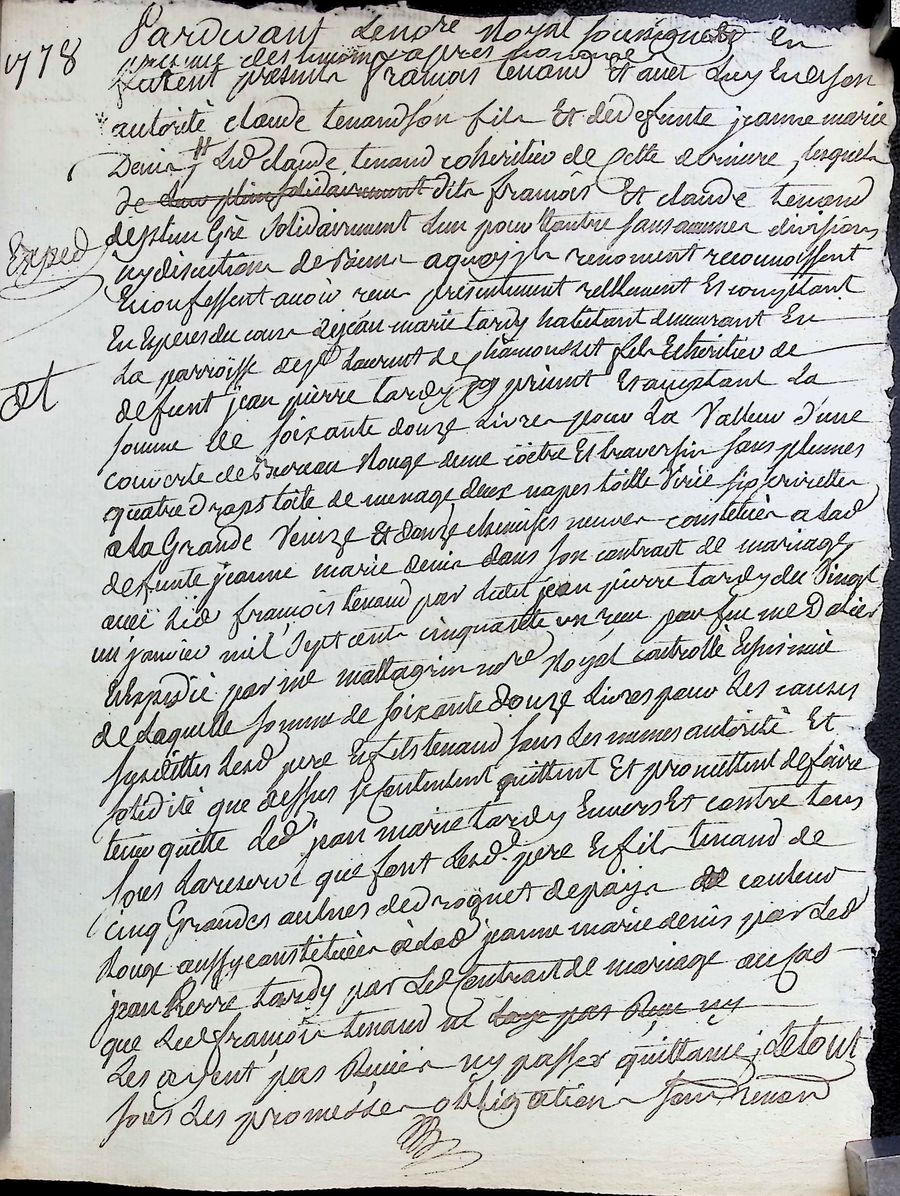 1778
Pardevant Le nore Royal soussigné et en
presence des temoins apres nommés
furent presents françois tenaud et avec Luy en de son
autorité claude tenaud son fils Et de defunte jeanne marie
Denis Led claude tenaud coheritier de cette derniere lesquels
de leur plein solidairement dits francois Et claude tenaud
de plein Gré solidairement L'un pour L'autre sans aucune division
ny discution de biens a quoy ils renoncent reconnoissent
Et confessent avoir reçu presentement rellement Et comptant
Exped
En Especes du cours de jean marie tardy habitant demeurant En
La parroisse de st Laurent de chamousset fils Et heritier de
defunt jean pierre tardy present Et acceptant La
somme de soixante douze Livres pour La Valleur d'une
couverte de Bureau Rouge d'une coëtre Et traversin sans plumes
quatre draps toile de menage deux napes toille Virée six serviettes
a La Grande Venize Et douze chemises neuves constituées a Lad
defunte jeanne marie denis dans son contrat de mariage
avec Led françois tenaud par Ledit jean pierre tardy du Vingt
un janvier mil sept cents cinquante un reçu par feu me Dalier
Et Expedié par me mattagrin nore Royal controllé Et insinué
de Laquelle somme de soixante douze Livres pour Les causes
susdittes Lesd pere Et fils tenaud sous Les memes autorité Et
solidité que dessus se contentent quittent Et promettent de faire
tenir quitte Led jean marie tardy Envers Et contre tous
sous La reserve que font Lesd pere Et fils tenaud de
cinq Grandes aulnes de droguet de pays de couleur
Rouge aussy constituées a Lad jeanne marie denis par Led
jean Pierre tardy par Led Contrat de mariage au cas
que Led françois tenaud ne Laye pas Reçu ny
Les ayent pas Reçues ny passer quittance; Le tout
sous Les promesses obligations